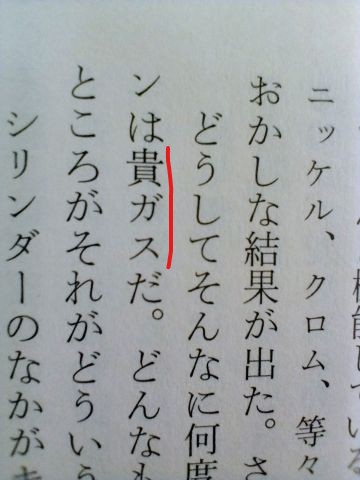 ニッケル、クロム、等々
おかしな結果が出た。さ
どうしてそんなに何度
ンは貴ガスだ。どんなも
ところがそれがどういう
シリンダーのなかが